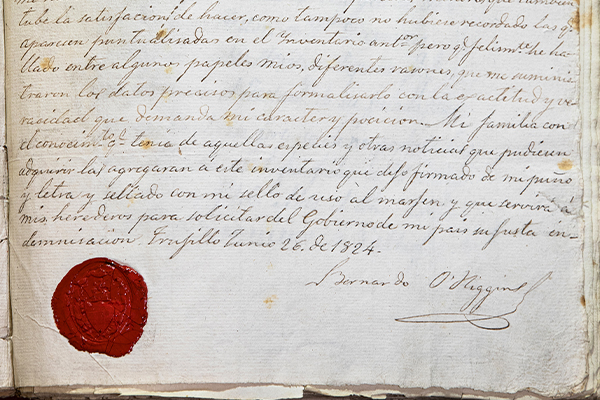 tube la satisfaccion de hacer, como tampoco no hubiere recordado las q.e
aparecen puntualisadas en el Inventario ant.or pero q.e felizm.te he ha-
llado entre algunos papeles mios, diferentes rasones, que me suminis-
traron los datos precisos para formalisarlo con la exactitud y ve-
racidad que demanda mi caracter y posicion. Mi familia con
el conocim.to q.e tenia de aquellas especies y otras noticias que pudieren
adquirir las agregaran a este inventario que dejo firmado de mi puño
y letra y sellado con mi sello de uso al marjen y que servirá á
mis herederos para solicitar del Gobierno de mi pais su justa in-
demnisacion. Trujillo Junio 26. de 1824.
Bernardo O'Higgins